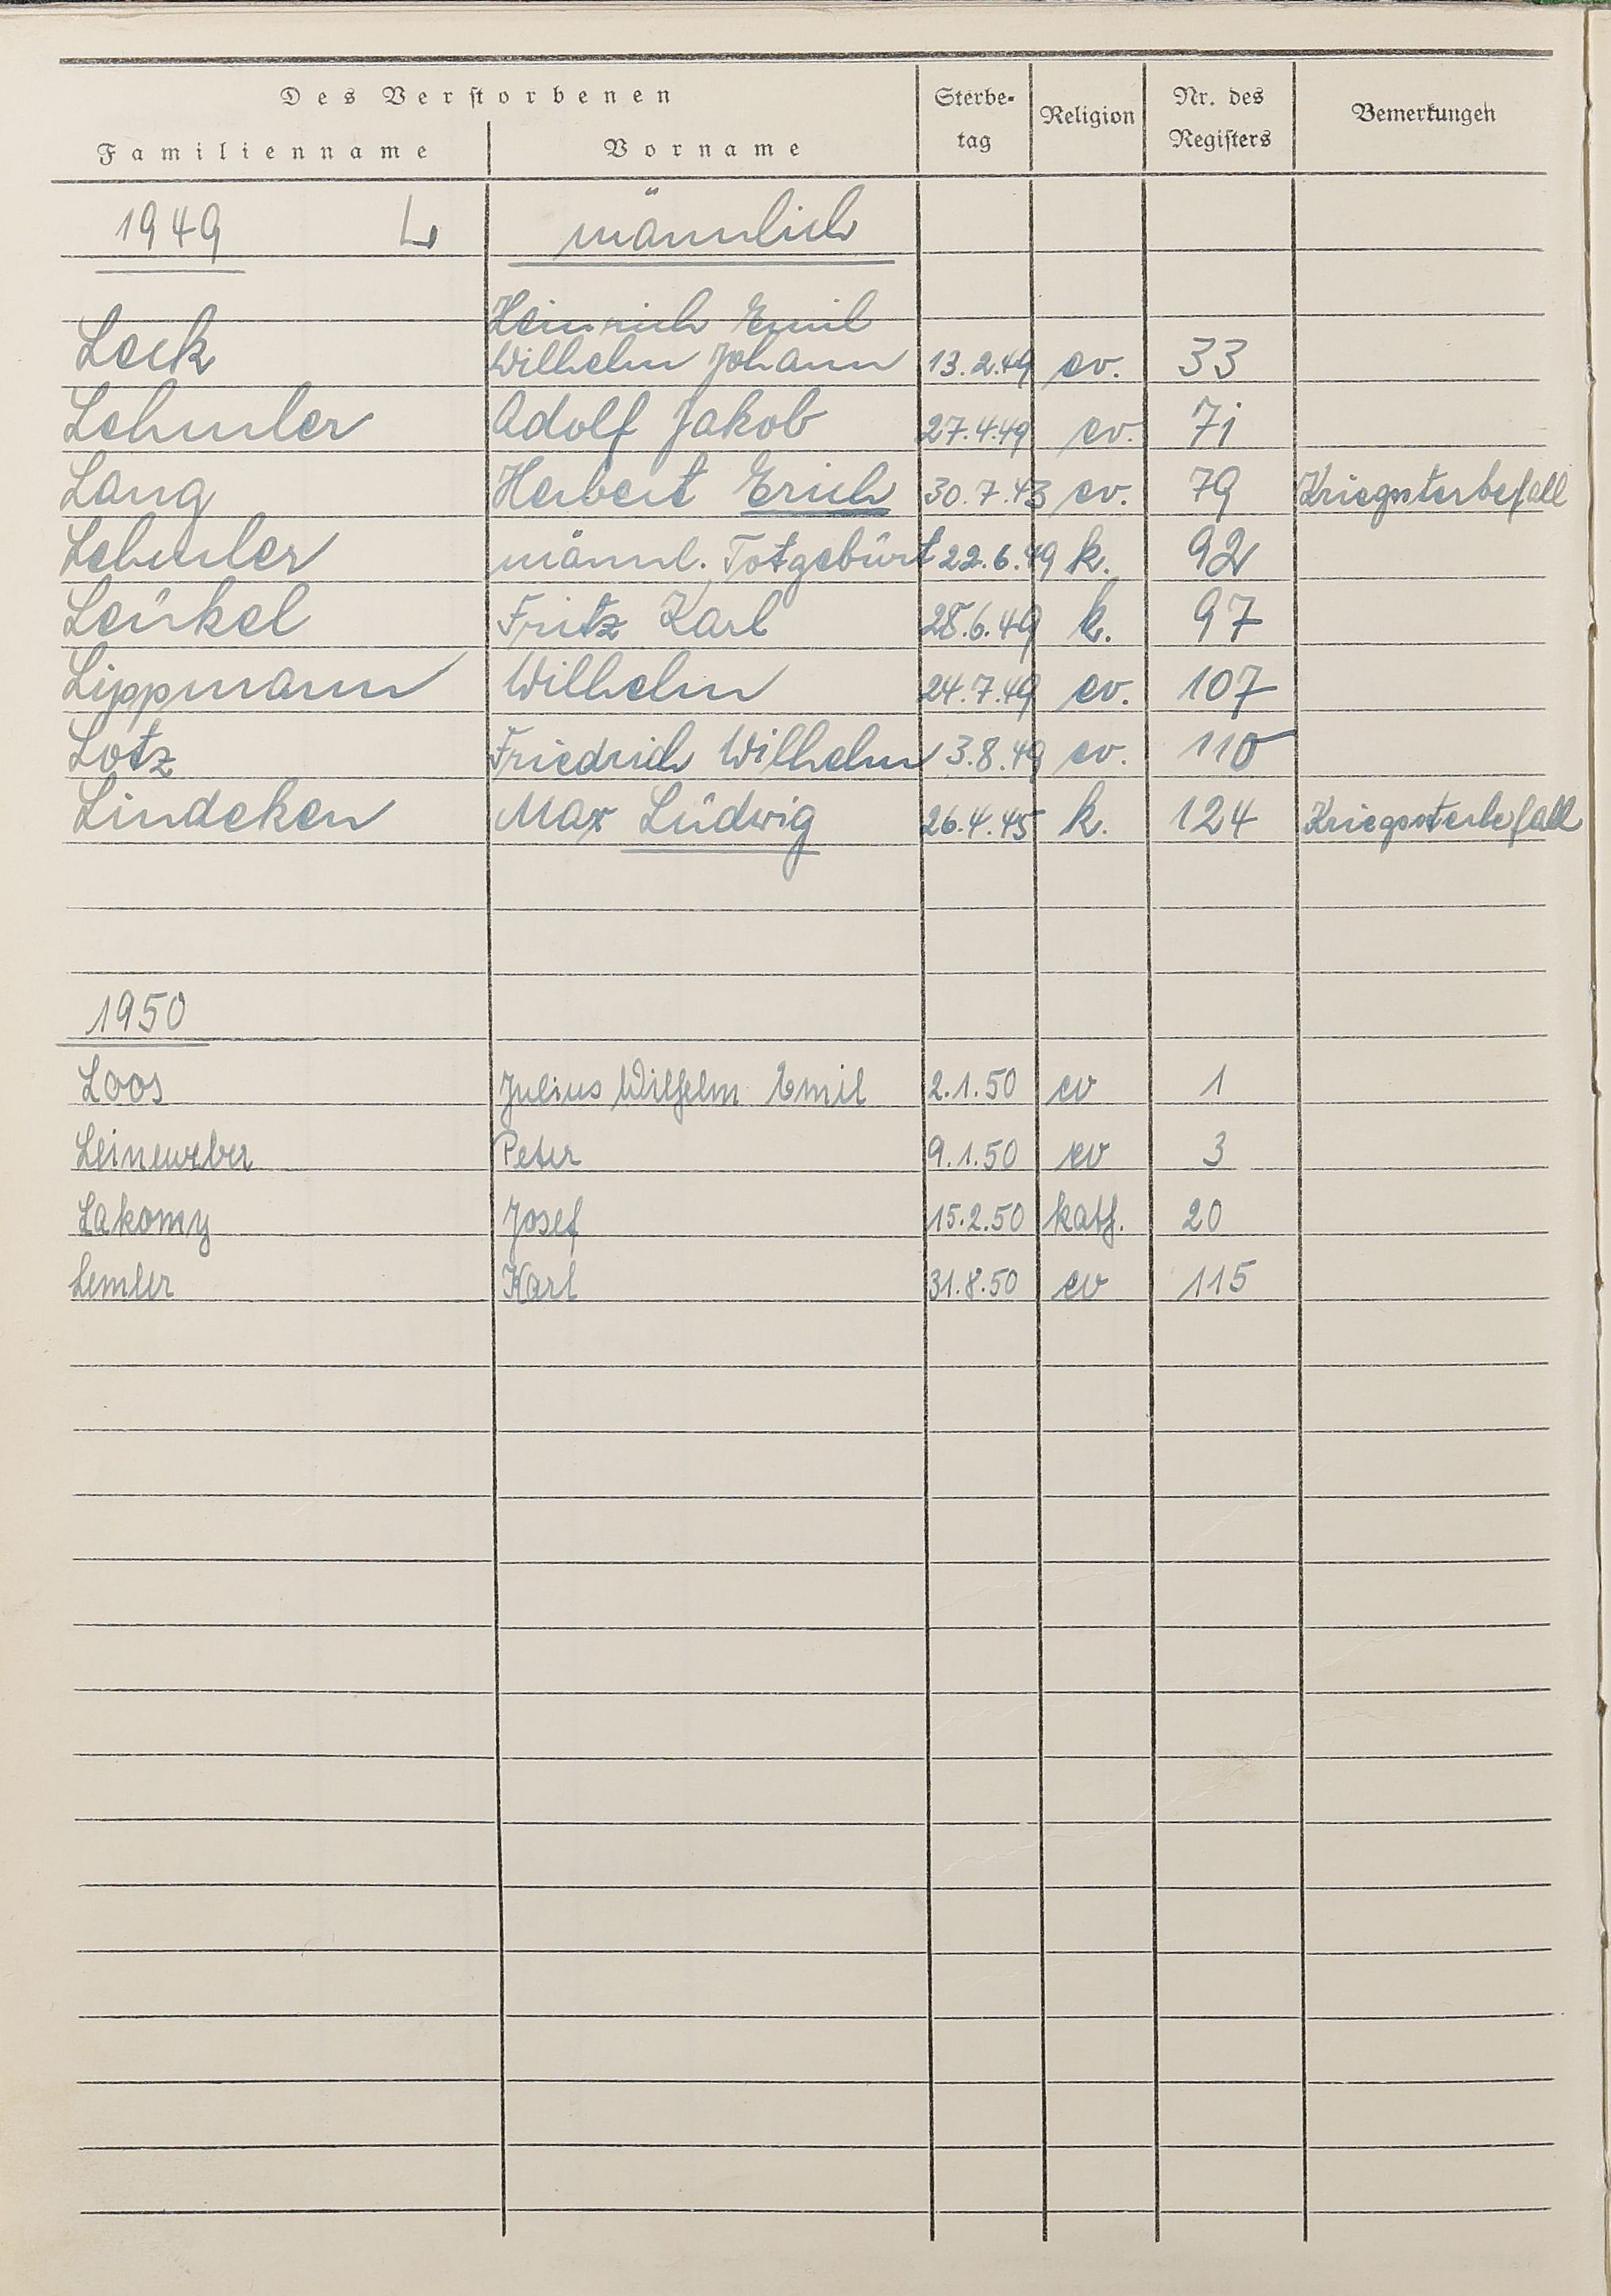 Des Verstorbenen
Familienname Vorname Sterbe-tag Religion Nr. des Registers Bemerkungen
1949 L männlich
Heinrich Emil
Leck Wilhelm Johann 13.2.49 ev. 33
Lehmler Adolf Jakob 27.4.49 ev. 71
Lang Herbert Erich 30.7.43 ev. 79 Kriegssterbefall
Lehmler männl. Totgeburt 22.6.49 k. 92
Leukel Fritz Karl 28.6.49 k. 97
Lippmann Wilhelm 24.7.49 ev. 107
Lotz Friedrich Wilhelm 3.8.49 ev. 110
Lindeken Max Ludwig 26.4.45 k. 124 Kriegssterbefall
1950
Loos Julius Wilhelm Emil 2.1.50 ev 1
Leineweber Peter 9.1.50 ev 3
Lakomy Josef 15.2.50 kath. 20
Lemler Karl 31.8.50 ev 115